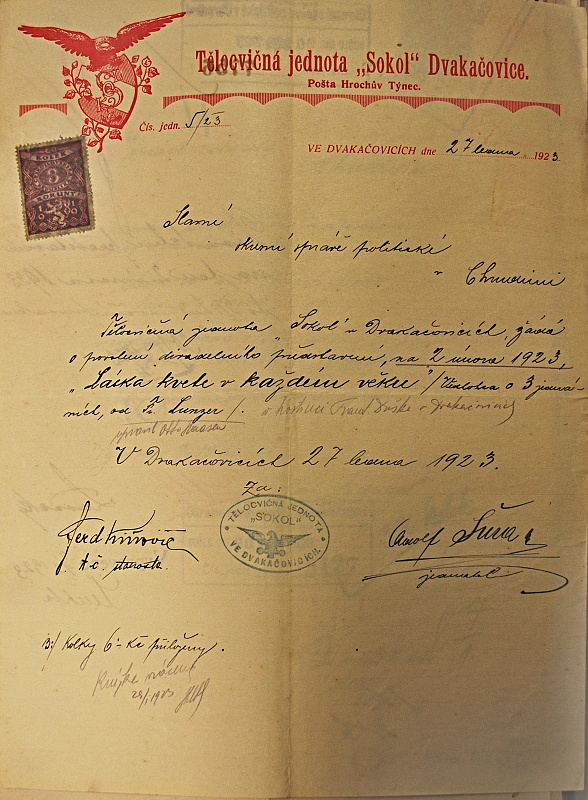 Tělocvičná jednota „Sokol“ Dvakačovice.
Pošta Hrochův Týnec.
Čís. jedn. 5/23
VE DVAKAČOVICÍCH dne 27 ledna 1923.
KOLEK
3
KORUNY
1919
Slavné
okresní správě politické
v Chrudimi
Tělocvičná jednota „Sokol“ v Dvakačovicích, žádá
o povolení divadelního představení, na 2 února 1923,
„Láska kvete v každém věku“ /Veselohra o 3 jedná-
ních, od Fr. Lunzer/. v hostinci Frant. Duška v Dvakačovicích
V Dvakačovicích 27 ledna 1923.
Za:
TĚLOCVIČNÁ JEDNOTA
„SOKOL“
VE DVAKAČOVICÍCH.
Ferd
t. č. starosta.
Adolf
jednatel
3/ Kolky 6·- Kč přiloženy.
Knížka vrácena
29/1 1923